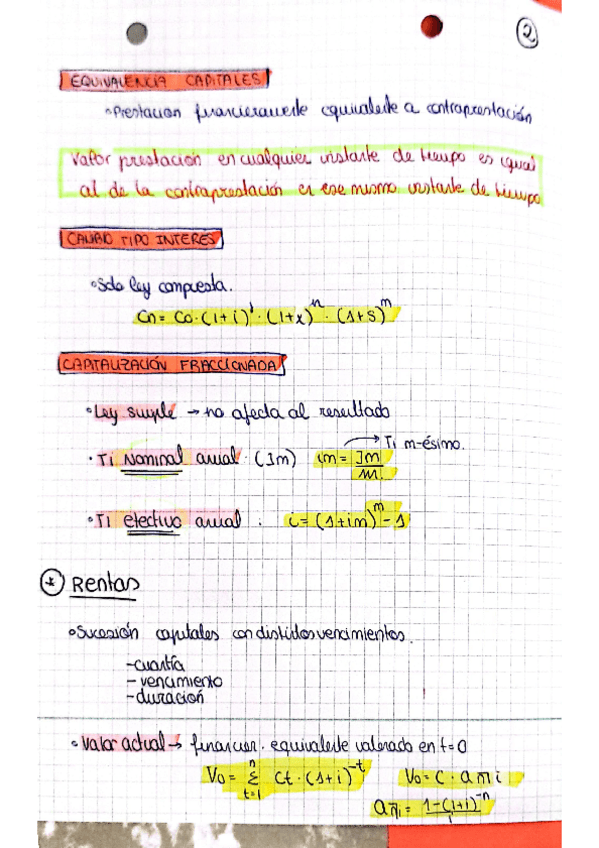 2
EQUIVALENCIA CAPITALES
◦Prestación financieramente equivalente a contraprestación
Valor prestación en cualquier instante de tiempo es igual
al de la contraprestación en ese mismo instante de tiempo
CAMBIO TIPO INTERES
◦Solo ley compuesta.
Cn = Co·(1+i)^1·(1+x)^n·(1+s)^m
CAPITALIZACIÓN FRACCIONADA
◦Ley simple → no afecta al resultado
· Ti Nominal anual (Jm) im = Jm/m → Ti m-ésimo.
◦Ti efectivo anual. i = (1+im)^m - 1
* Rentas
◦Sucesión capitales con distintos vencimientos.
-cuantía
- vencimiento
-duración
◦Valor actual → financier. equivalente valorado en t=0
Vo = n Σ t=1 Ct·(1+i)^-t Vo = C·a n̅ i
a n̅ i = 1-(1+i)^-n / i